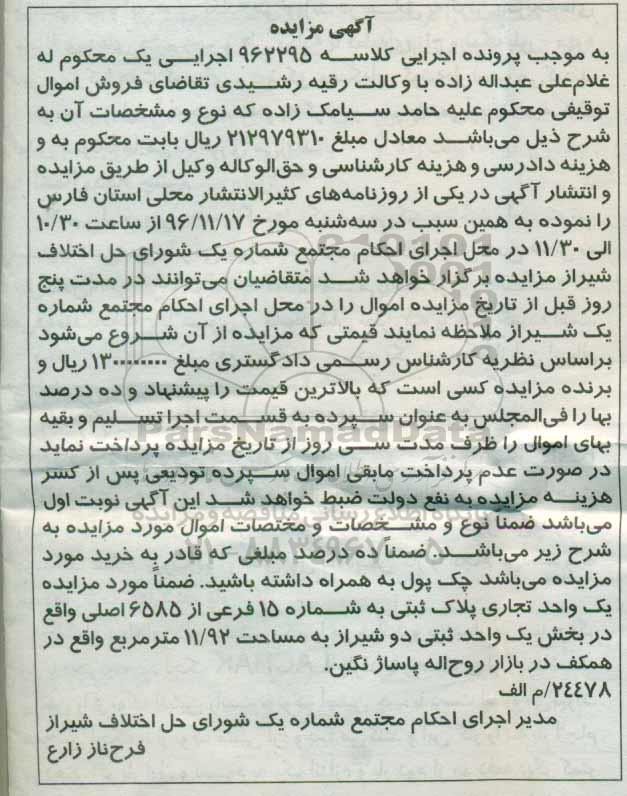 آگهی مزایده
به موجب پرونده اجرایی کلاسه ۹۶۲۲۹۵ اجرایی یک محکوم له
غلام‌علی عبداله زاده با وکالت رقیه رشیدی تقاضای فروش اموال
توقیفی محکوم علیه حامد سیامک زاده که نوع و مشخصات آن به
شرح ذیل می‌باشد معادل مبلغ ۲۱۲۹۷۹۳۱۰ ریال بابت محکوم به و
هزینه دادرسی و هزینه کارشناسی و حق‌الوکاله وکیل از طریق مزایده
و انتشار آگهی در یکی از روزنامه‌های کثیرالانتشار محلی استان فارس
را نموده به همین سبب در سه‌شنبه مورخ ۹۶/۱۱/۱۷ از ساعت ۱۰/۳۰
الی ۱۱/۳۰ در محل اجرای احکام مجتمع شماره یک شورای حل اختلاف
شیراز مزایده برگزار خواهد شد متقاضیان می‌توانند در مدت پنج
روز قبل از تاریخ مزایده اموال را در محل اجرای احکام مجتمع شماره
یک شیراز ملاحظه نمایند قیمتی که مزایده از آن شروع می‌شود
براساس نظریه کارشناس رسمی دادگستری مبلغ ۱۳۰۰۰۰۰۰۰۰ ریال و
برنده مزایده کسی است که بالاترین قیمت را پیشنهاد و ده درصد
بها را فی‌المجلس به عنوان سپرده به قسمت اجرا تسلیم و بقیه
بهای اموال را ظرف مدت سی روز از تاریخ مزایده پرداخت نماید
در صورت عدم پرداخت مابقی اموال سپرده تودیعی پس از کسر
هزینه مزایده به نفع دولت ضبط خواهد شد این آگهی نوبت اول
می‌باشد ضمنا نوع و مشخصات و مختصات اموال مورد مزایده به
شرح زیر می‌باشد. ضمناً ده درصد مبلغی که قادر به خرید مورد
مزایده می‌باشد چک پول به همراه داشته باشید. ضمناً مورد مزایده
یک واحد تجاری پلاک ثبتی به شماره ۱۵ فرعی از ۶۵۸۵ اصلی واقع
در بخش یک واحد ثبتی دو شیراز به مساحت ۱۱/۹۲ مترمربع واقع در
همکف در بازار روح‌اله پاساژ نگین.
۲۴۴۷۸/م الف
مدیر اجرای احکام مجتمع شماره یک شورای حل اختلاف شیراز
فرح‌ناز زارع
ParsNamadData
پایگاه اطلاع رسانی مناقصه و مزایده